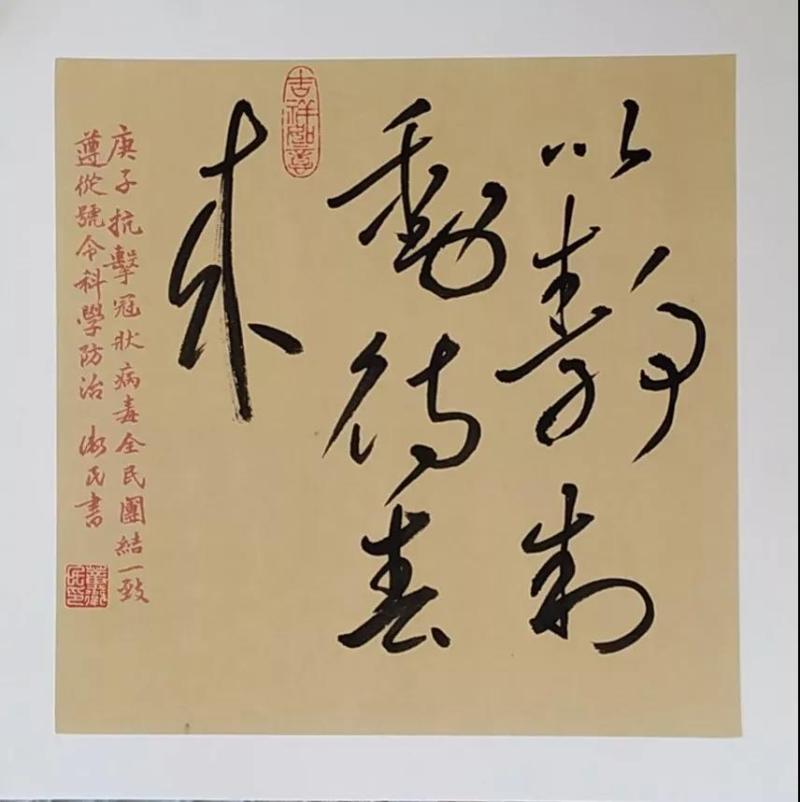 以静制
動待春
来
吉祥如意
庚子抗擊冠狀病毒全民團結一致
遵從號令科學防治 淑民書